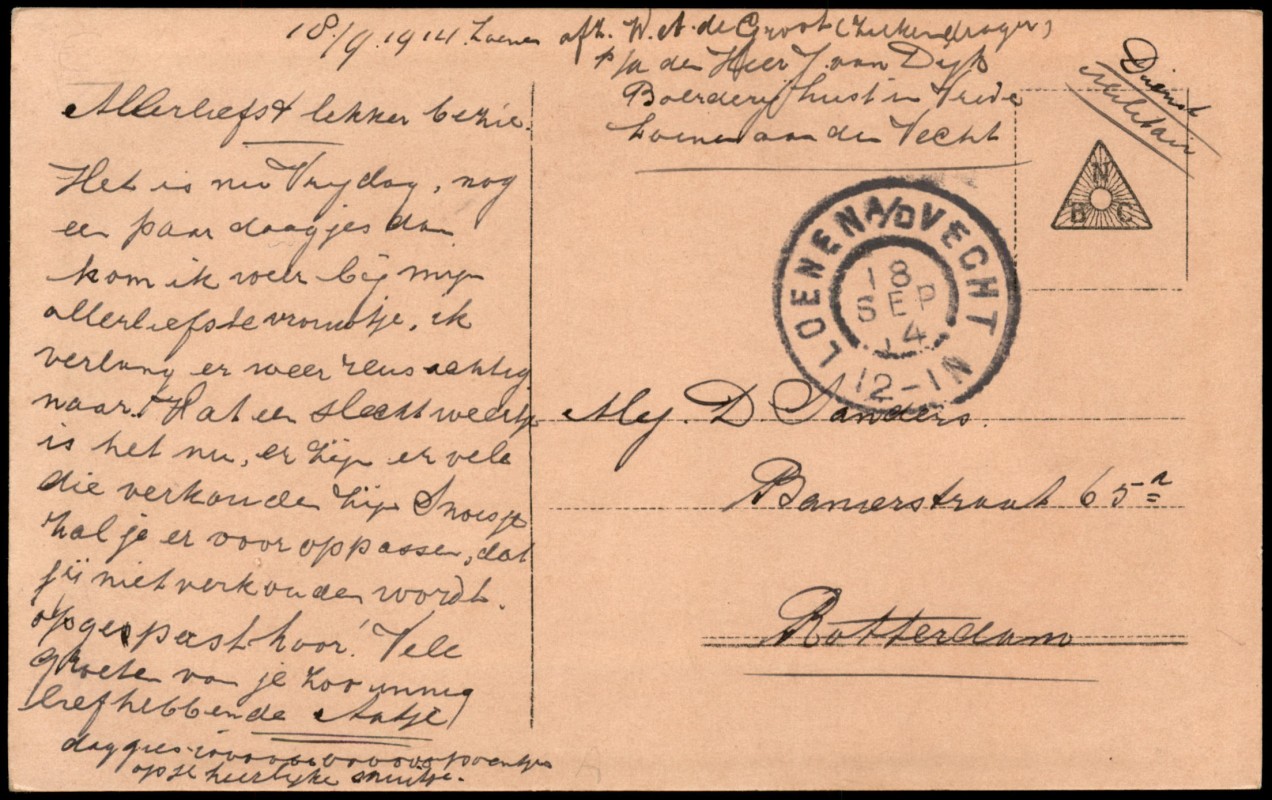 18/9.1914. Loenen
afz. W. A. de Groot (ziekendrager)
p/a den Heer J. van Dijk
Boerderij Lust in Vrede
Loenen aan den Vecht
Dienst
Militair
Allerliefst lekker bezie.
Het is nu Vrydag, nog
een paar daagjes dan
kom ik weer bij myn
allerliefste vrouwtje, ik
verlang er weer reusachtig
naar! Wat een slecht weertje
is het nu, er zijn er vele
die verkouden zijn Snoesje
zal je er voor oppassen, dat
jij niet verkouden wordt.
opgepast hoor! Vele
groeten van je zoo innig
liefhebbende Aatje
op je heerlijke snuitje.
N
B C
LOENEN A/D VECHT
18
SEP
14
12-1N
Mej. D. Sanders.
65a
Rotterdam